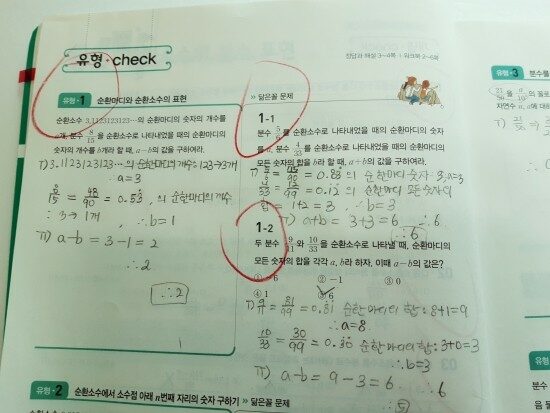 유형·check
정답과 해설 3~4쪽 | 워크북 2~6쪽
유형·1 순환마디와 순환소수의 표현
순환소수 3.1123123123…의 순환마디의 숫자의 개수를
a개, 분수 8/15을 순환소수로 나타내었을 때의 순환마디의
숫자의 개수를 b개라 할 때, a-b의 값을 구하여라.
3.1123123123…의 순환마디의 개수:123→3개
∴a=3
8/15 = 48/90 = 0.53, 의 순환마디의 개수
: 3 → 1개 , ∴b=1
a-b = 3-1 = 2
∴2
∴2
≫ 닮은꼴 문제
1-1
분수 5/6를 순환소수로 나타내었을 때의 순환마디의 숫자
를 a, 분수 4/33를 순환소수로 나타내었을 때의 순환마디의
모든 숫자의 합을 b라 할 때, a-b의 값을 구하여라.
의 순환마디 숫자:3, a=3
의 순환마디 모든 숫자의
1+2=3 ∴b=3
a+b = 3+3=6 ∴6
∴6
1-2
두 분수 9/11와 10/33을 순환소수로 나타낼 때, 순환마디의
모든 숫자의 합을 각각 a, b라 하자. 이때 a-b의 값은?
① -6 ② -1 ③ 0
④ 1 ⑤ 6
9/11 = 81/99 = 0.81 순환마디의 합: 8+1=9
∴a=8
10/33 = 30/99 = 0.30 순환마디의 합: 3+0=3
∴b=3
a-b = 9-3=6 ∴6
유형·2 순환소수에서 소수점 아래 n번째 자리의 숫자 구하기 ≫ 닮은꼴 문제
유형·3